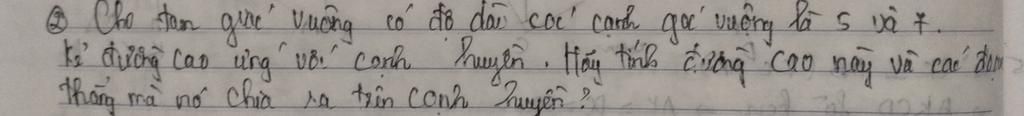 ② Cho tam giác vuông có độ dài các cạnh góc vuông là 5 và 7.
Kẻ đường cao ứng với cạnh huyền. Hãy tính đường cao này và các đoạn
thẳng mà nó chia ra trên cạnh huyền?